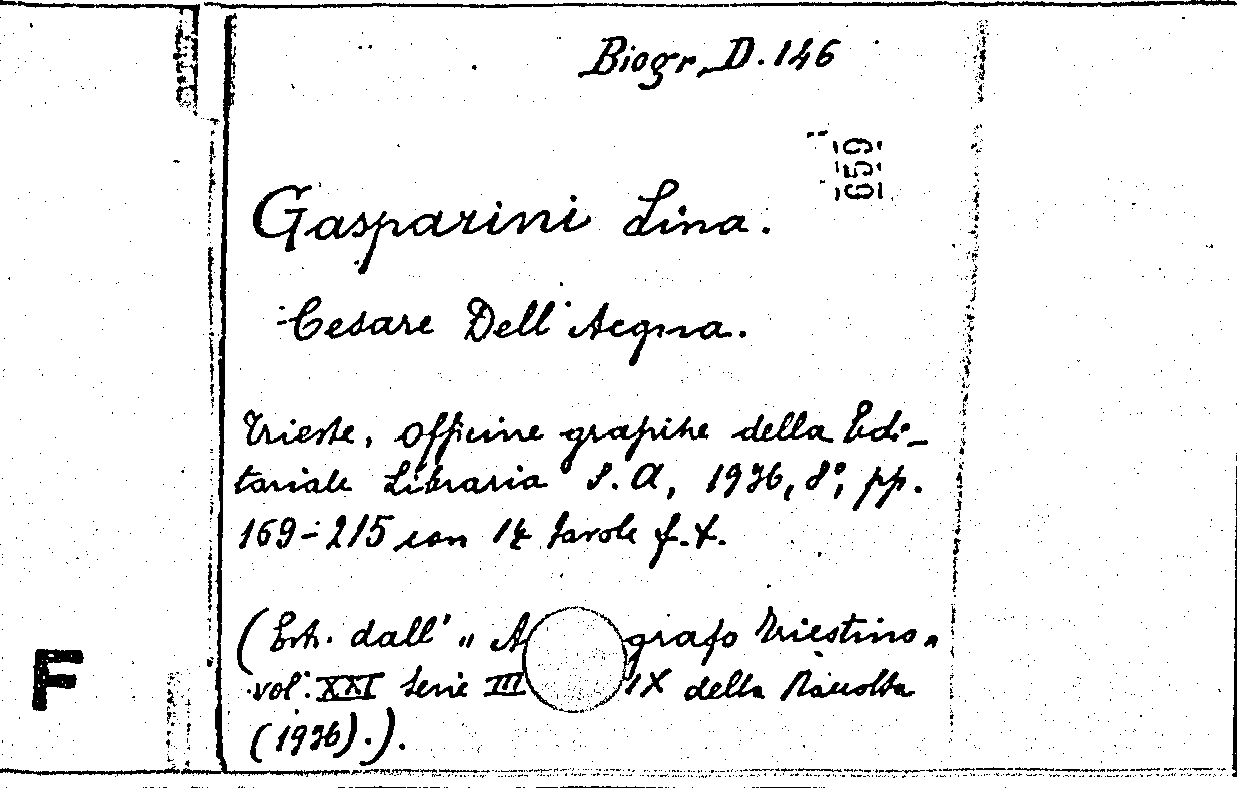 Biogr. D. 146
659
Gasparini Lina.
Cesare Dell'Acqua.
Trieste, Officine grafiche della Edi-
toriale Libraria S. A, 1936, 8°, pp.
169-215 con 14 tavole f.t.
(Estr. dall' „ A grafo Triestino„
vol. XXI Serie III IX della Raccolta
(1936).).
F